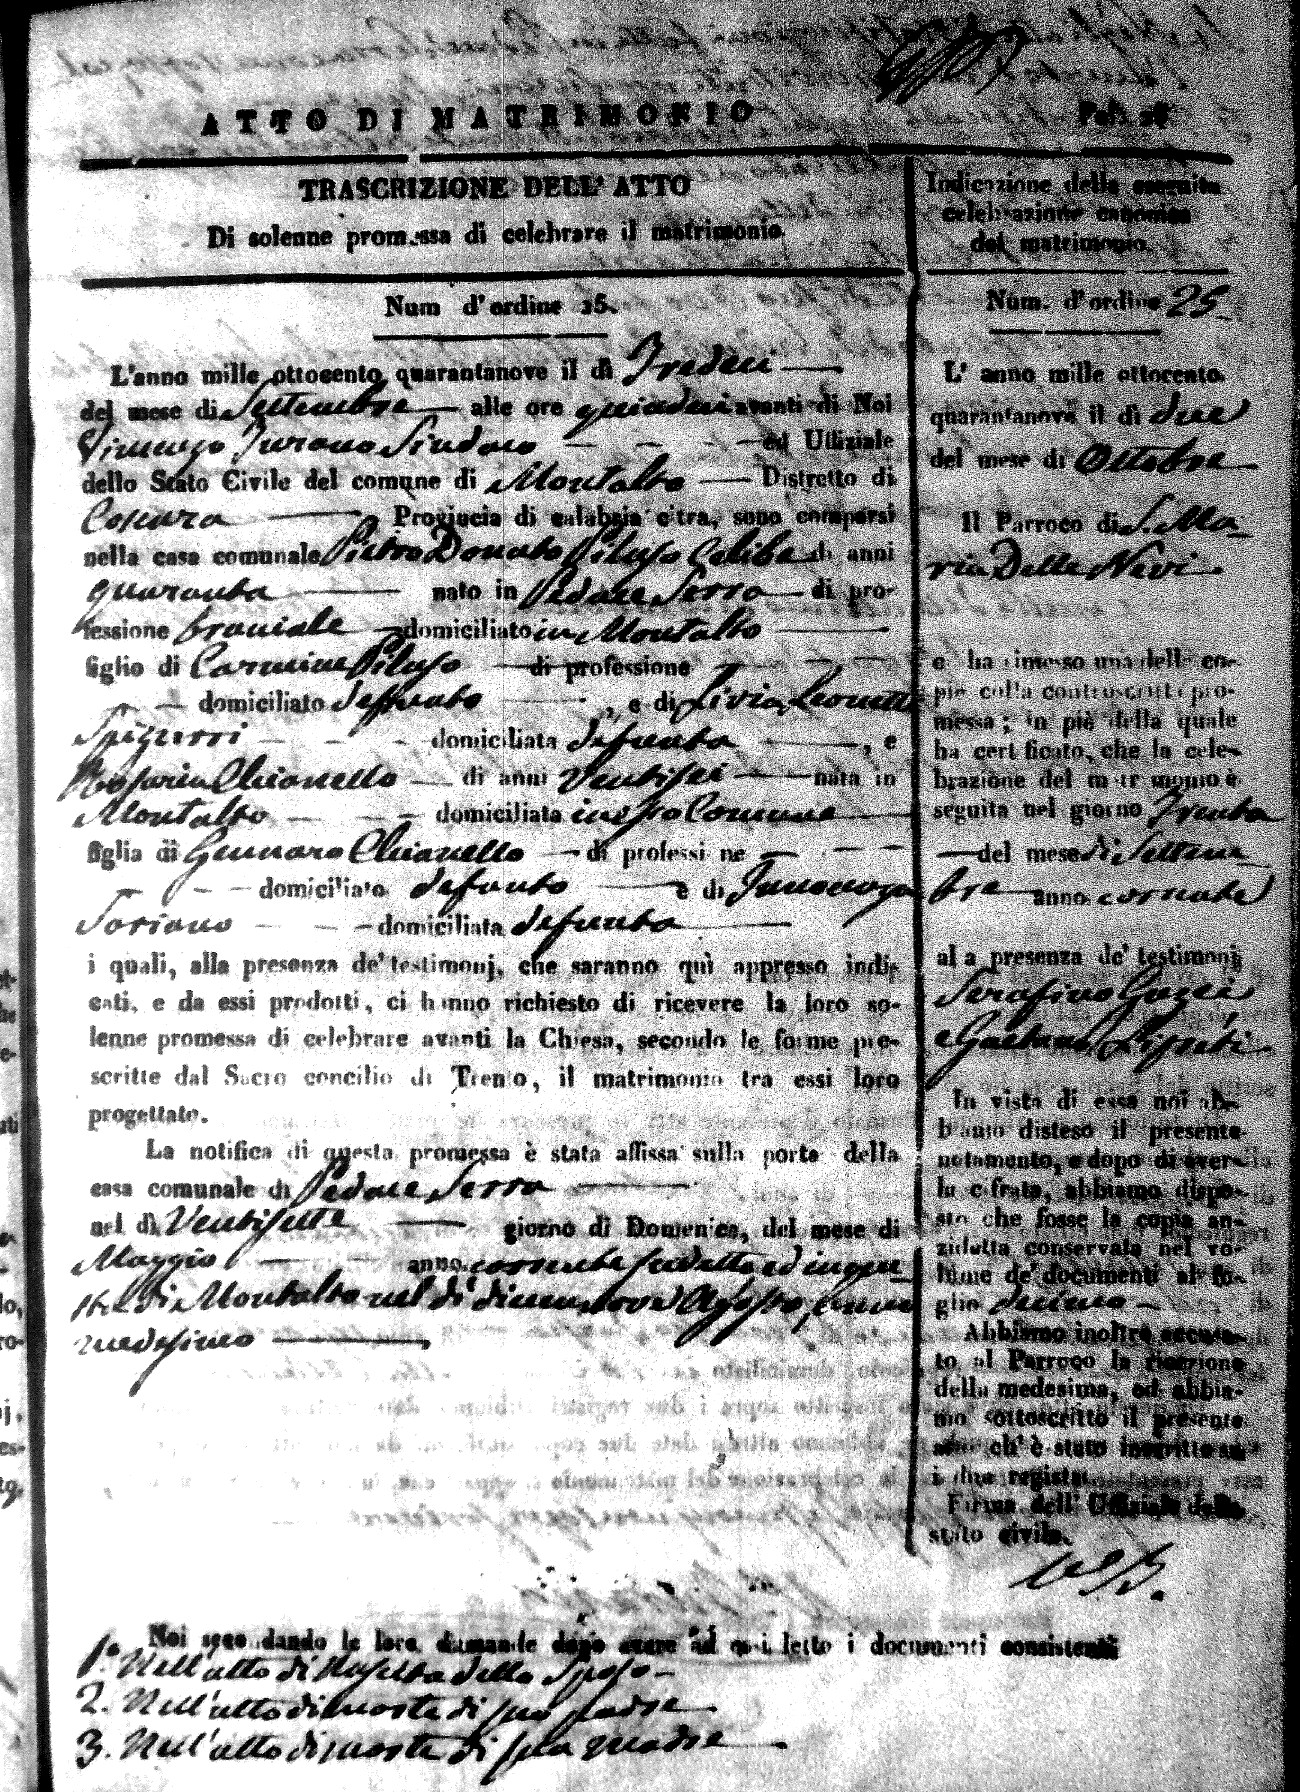 ATTO DI MATRIMONIO
TRASCRIZIONE DELL' ATTO
Di solenne promessa di celebrare il matrimonio
Num d'ordine 25.
L'anno mille ottocento quarantanove il dì Tredeci
del mese di Settembre alle ore quindeci avanti di Noi
Vincenzo Turano Sindaco ed Uffiziale
dello Stato Civile del comune di Montalto Distretto di
Cosenza Provincia di calabria citra, sono comparsi
nella casa comunale Pietro Donato Piluso Celibe di anni
quaranta nato in Pedace Serra di pro-
fessione braciale domiciliato in Montalto
figlio di Carmine Piluso di professione
domiciliato defunto, e di Livia Leonetti
Spizzirri domiciliata defunta, e
Rosaria Chianello di anni Ventisei nata in
Montalto domiciliata in esso Comune
figlia di Gennaro Chianello di professi ne
domiciliato defunto e di Innocenza
Soriano domiciliata defunta
i quali, alla presenza de' testimonj, che saranno quì appresso indi-
cati, e da essi prodotti, ci hanno richiesto di ricevere la loro so-
lenne promessa di celebrare avanti la Chiesa, secondo le forme pre-
scritte dal Sacro concilio di Trento, il matrimonio tra essi loro
progettato.
La notifica di questa promessa è stata affissa sulla porta della
casa comunale di Pedace Serra
nel dì Ventisette giorno di Domenica, del mese di
Maggio anno corrente sudetto ed in que
sta di Montalto nel dì diecinnove Agosto, anno
medesimo
Noi secondando le loro dimande dopo avere ad essi letto i documenti consistenti
1.° Nell'atto di nascita dello Sposo
2. Nell'atto di morte di suo padre
3. Nell'atto di morte di sua madre
Indicazione della seguita
celebrazione canonica
del matrimonio.
Num. d'ordine 25
L' anno mille ottocento
quarantanove il dì due
del mese di Ottobre
Il Parroco di S. Ma
ria Delle Nevi
e ha rimesso una delle co-
pie colla controscritta pro-
messa; in piè della quale
ha certificato, che la cele-
brazione del matrimonio è
seguita nel giorno Trenta
del mese di Settem
bre anno corrente
alla presenza de' testimonj
Serafino
e Gaetano
In vista di essa noi ab-
biamo disteso il presente
notamento, e dopo di aver-
la cifrata, abbiamo dispo-
sto che fosse la copia an-
zidetta conservata nel vo-
lume de' documenti al fo-
glio decimo
Abbiamo inoltre accusa-
to al Parroco la ricezione
della medesima, ed abbia-
mo sottoscritto il presente
atto ch' è stato inscritto su
i due registri
Firma dell' Uffiziale dello
stato civile.